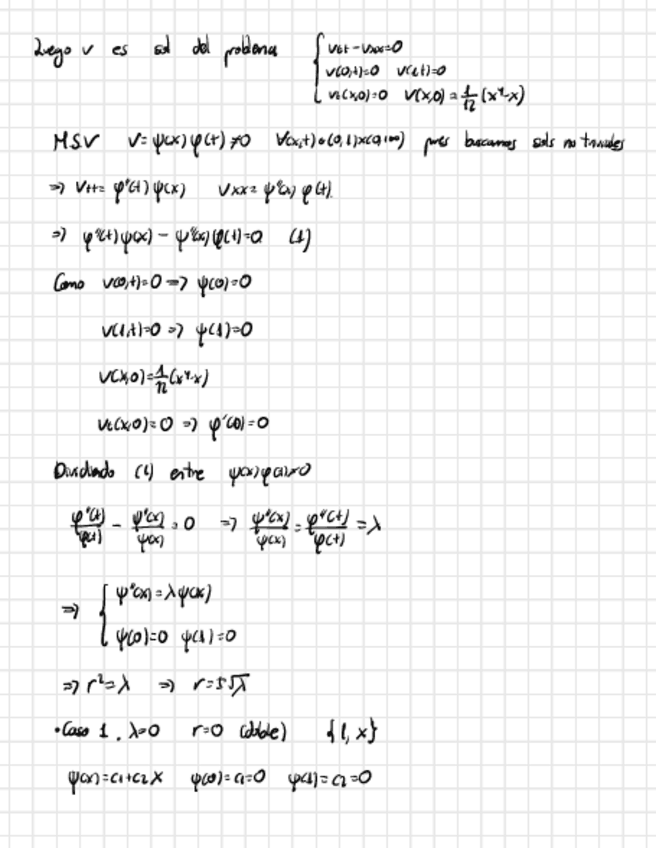 Luego v es sol del problema { vtt - vxx = 0
v(0,t)=0 v(1,t)=0
vt(x,0)=0 v(x,0) = 1/12 (x⁴-x)
MSV v = ψ(x) φ(t) ≠ 0 ∀(x,t)∈(0,1)×(0,∞) pues buscamos sols no triviales
⇒ vtt = φ''(t) ψ(x) vxx = ψ''(x) φ(t)
⇒ φ''(t)ψ(x) - ψ''(x)φ(t) = 0 (1)
Como v(0,t)=0 ⇒ ψ(0)=0
v(1,t)=0 ⇒ ψ(1)=0
v(x,0)=1/12 (x⁴-x)
vt(x,0)=0 ⇒ φ'(0)=0
Dividiendo (1) entre ψ(x)φ(t)≠0
φ''(t)/φ(t) - ψ''(x)/ψ(x) = 0 ⇒ ψ''(x)/ψ(x) = φ''(t)/φ(t) = λ
⇒ { ψ''(x) = λψ(x)
ψ(0)=0 ψ(1)=0
⇒ r² = λ ⇒ r = ±√λ
• Caso 1. λ=0 r=0 (doble) {1, x}
ψ(x) = c1+c2x ψ(0)=c1=0 ψ(1)=c2=0